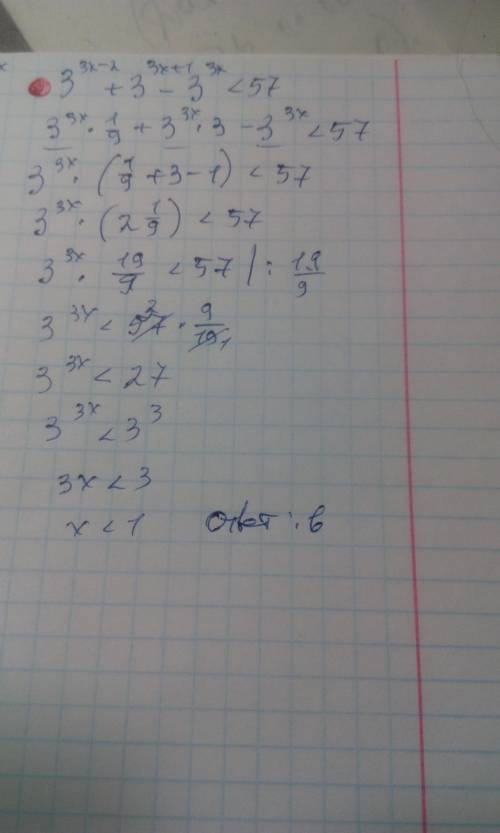 3^{3x-2} + 3^{3x+1} - 3^{3x} < 57
3^{3x} · 1/9 + 3^{3x} · 3 - 3^{3x} < 57
3^{3x} · (1/9 + 3 - 1) < 57
3^{3x} · (2 1/9) < 57
3^{3x} · 19/9 < 57 | : 19/9
3^{3x} < 57 3 · 9/19 1
3^{3x} < 27
3^{3x} < 3^3
3x < 3
x < 1 Ответ: в